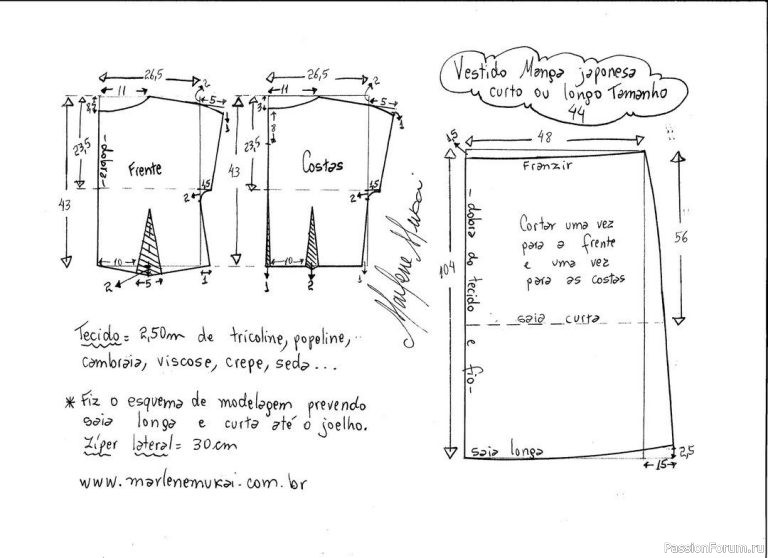 Vestido Manga japonesa
curto ou longo Tamanho
44
26,5
11
2
5
8
1
23,5
43
-dobra-
Frente
1,5
2
10
5
2
1
26,5
11
2
5
3
8
1
23,5
43
Costas
1,5
2
10
1
2
1
Marlene Mukai
1,5
48
Franzir
104
56
-dobra do tecido e fio-
Cortar uma vez
para a frente
e uma vez
para as costas
saia curta
saia longa
15
2,5
Tecido = 2,50m de tricoline, popeline,
cambraia, viscose, crepe, seda...
* Fiz o esquema de modelagem prevendo
saia longa e curta até o joelho.
Zíper lateral = 30cm
www.marlenemukai.com.br
PassionForum.ru